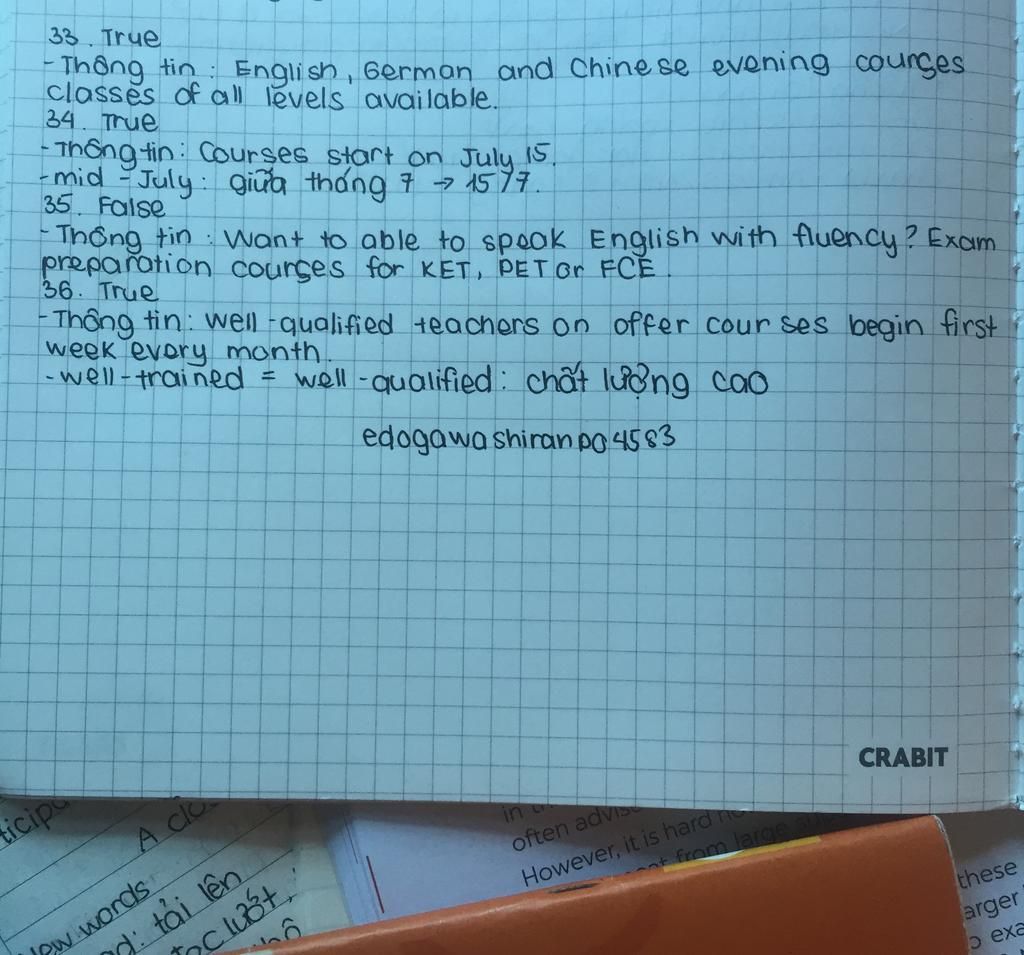 33. True
- Thông tin: English, German and Chinese evening courses
classes of all levels available.
34. True
- Thông tin: Courses start on July 15.
- mid - July: giữa tháng 7 → 15/7.
35. False
- Thông tin: Want to able to speak English with fluency? Exam
preparation courses for KET, PET or FCE.
36. True
- Thông tin: well-qualified teachers on offer courses begin first
week every month.
- well-trained = well-qualified: chất lượng cao
edogawashiranpo4583
CRABIT
A
words
tải lên
lướt,
in
often
However, it is hard
from large
these